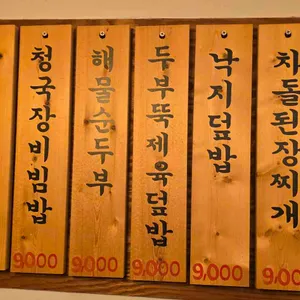 청국장비빔밥
9,000
해물순두부
9,000
두부뚝제육덮밥
9,000
낙지덮밥
9,000
차돌된장찌개
9,000